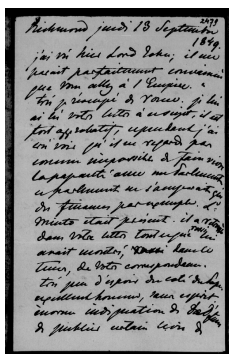 2479
Richmond jeudi 13 Septembre
1849.
j'ai vu hier Lord John, il me
parait parfaitement convaincu
que vous allez à l'Empire.
très préoccupé de Rome. je lui
ai lu votre lettre à ce sujet, il est
fort approbatif, cependant j'ai
cru voir qu'il ne regarde pas
comme impossible de faire vivre
la papauté avec un Parlement
ce parlement ne s'occupant que
des finances par exemple. L
Minto était présent. il a retrouvé
dans votre lettre tout ce qui
avait montré, aussi dans le
tems, de votre correspondance.
excellent homme, sans esprit
énorme indignation de
de publier certain livre de